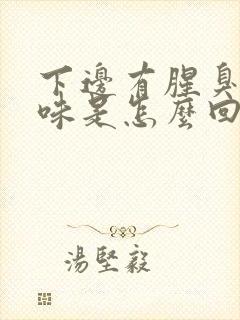 下邊有腥臭
味是怎麼回
湯堅毅